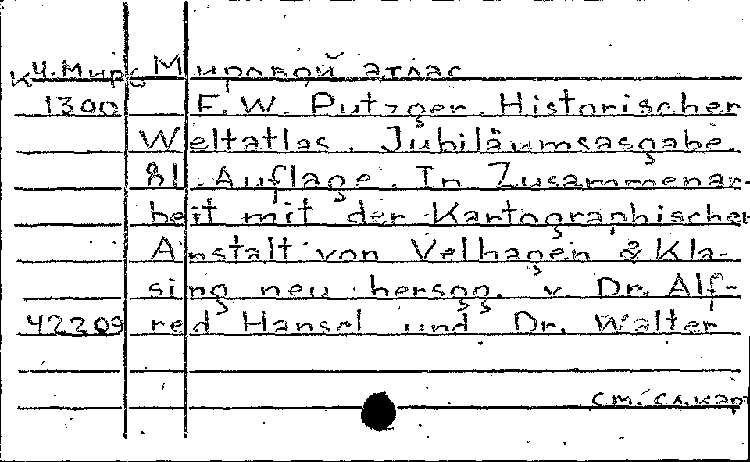 К Ч.Миро Мировой атлас
1300 F. W. Putzger. Historischer
Weltatlas. Jubiläumsasgabe.
81. Auflage. In Zusammenar-
beit mit der Kartographischen
Anstalt von Velhagen & Kla-
sing neu hersgg. v. Dr. Alf-
42209 red Hansel und Dr. Walter
см. сл. карт